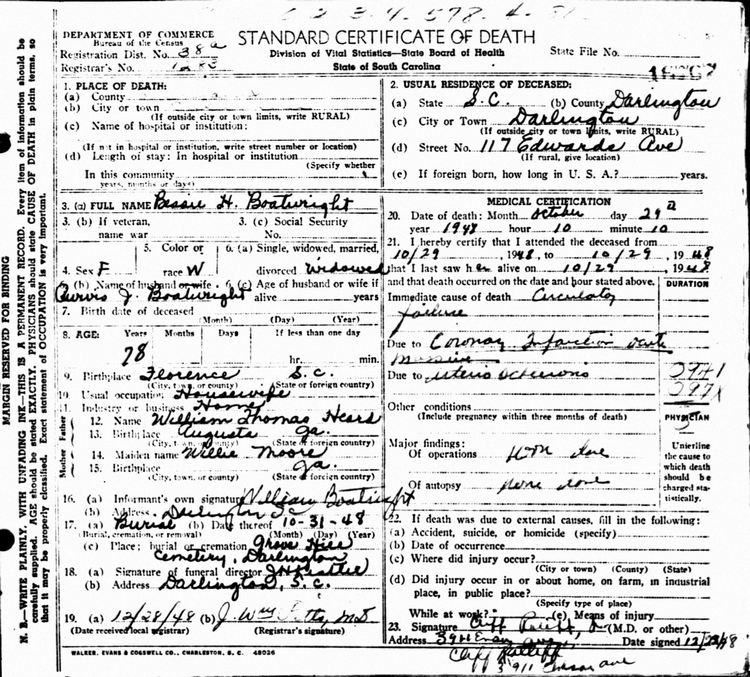 DEPARTMENT OF COMMERCE
Bureau of the Census
Registration Dist. No. 38a
Registrar's No.
STANDARD CERTIFICATE OF DEATH
Division of Vital Statistics—State Board of Health
State of South Carolina
State File No.
1. PLACE OF DEATH:
(a) County
(b) City or town
(If outside city or town limits, write RURAL)
(c) Name of hospital or institution:
(If not in hospital or institution, write street number or location)
(d) Length of stay: In hospital or institution
(Specify whether
In this community
years, months or days)
2. USUAL RESIDENCE OF DECEASED:
(a) State S.C. (b) County Darlington
(c) City or Town Darlington
(If outside city or town limits, write RURAL)
(d) Street No. 117 Edwards Ave
(If rural, give location)
(e) If foreign born, how long in U. S. A.? years.
3. (a) FULL NAME Bessie H. Boatwright
3. (b) If veteran, name war
3. (c) Social Security No.
4. Sex F
5. Color or race W
6. (a) Single, widowed, married, divorced Widowed
6. (b) Name of husband or wife
J. Boatwright
6. (c) Age of husband or wife if alive years
7. Birth date of deceased
(Month) (Day) (Year)
8. AGE: Years Months Days If less than one day
78 hr. min.
9. Birthplace Florence S.C.
(City, town, or county) (State or foreign country)
10. Usual occupation Housewife
11. Industry or business Home
Father
12. Name William Thomas Heard
13. Birthplace Augusta Ga.
(City, town, or county) (State or foreign country)
Mother
14. Maiden name Willie Moore
15. Birthplace Ga.
(City, town, or county) (State or foreign country)
16. (a) Informant's own signature William Boatwright
(b) Address Darlington S.C.
17. (a) Burial (b) Date thereof 10-31-48
(Burial, cremation, or removal) (Month) (Day) (Year)
(c) Place; burial or cremation Grove Hill
Cemetery, Darlington
18. (a) Signature of funeral director
(b) Address Darlington, S.C.
19. (a) 12/28/48 (b) J. Wm
(Date received local registrar) (Registrar's signature)
MEDICAL CERTIFICATION
20. Date of death: Month October day 29
year 1948 hour 10 minute 10
21. I hereby certify that I attended the deceased from
10/29, 1948, to 10/29, 1948
that I last saw her alive on 10/29, 1948
and that death occurred on the date and hour stated above.
DURATION
Immediate cause of death Circulatory
failure
Due to Coronary Infarction acute
massive
Due to
Other conditions
(Include pregnancy within three months of death)
PHYSICIAN
Major findings:
Of operations
Of autopsy none done
Underline the cause to which death should be charged statistically.
22. If death was due to external causes, fill in the following:
(a) Accident, suicide, or homicide (specify)
(b) Date of occurrence
(c) Where did injury occur?
(City or town) (County) (State)
(d) Did injury occur in or about home, on farm, in industrial place, in public place?
(Specify type of place)
While at work? (e) Means of injury
23. Signature (M.D. or other)
Address Date signed 12/28/48
WALKER, EVANS & COGSWELL CO., CHARLESTON, S. C. 48026
MARGIN RESERVED FOR BINDING
N. B.—WRITE PLAINLY, WITH UNFADING INK—THIS IS A PERMANENT RECORD. Every item of information should be carefully supplied. AGE should be stated EXACTLY. PHYSICIANS should state CAUSE OF DEATH in plain terms, so that it may be properly classified. Exact statement of OCCUPATION is very important.